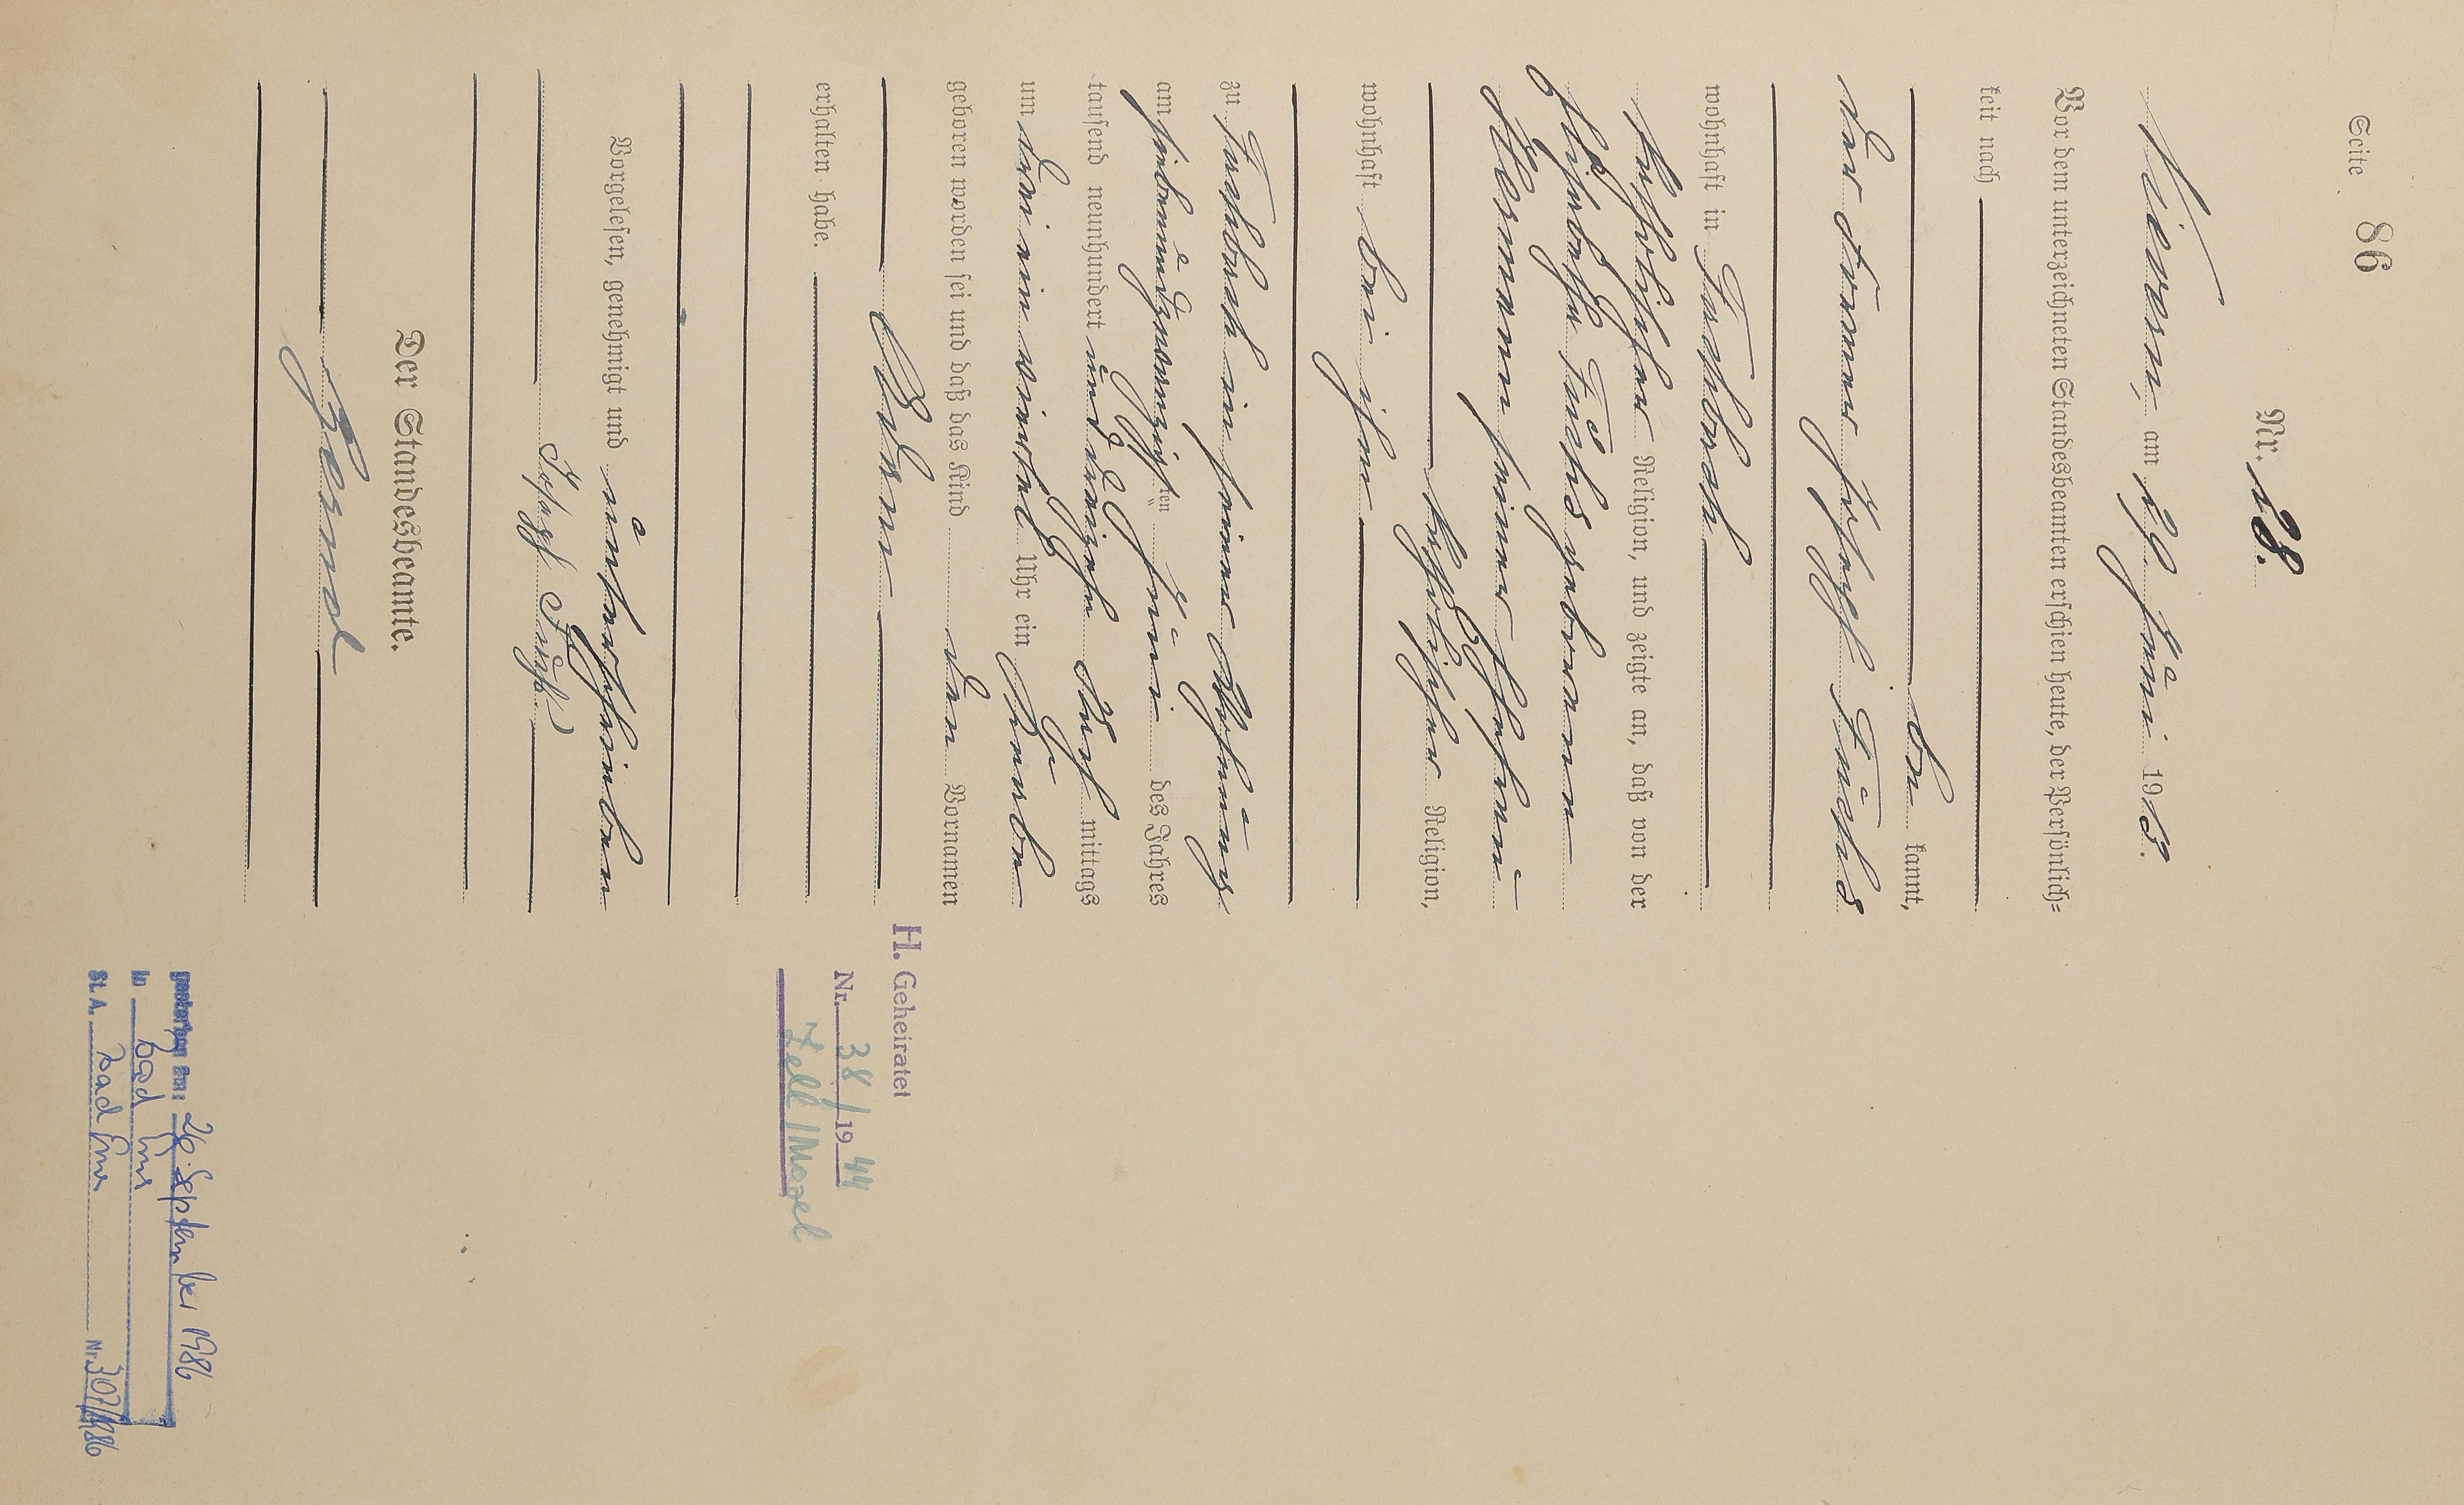 Seite 86
Nr. 28.
Nievern, am 29. Juni 1913.
Vor dem unterzeichneten Standesbeamten erschien heute, der Persönlich=
keit nach
be kannt,
der Former Josef Fuchs
wohnhaft in Fachbach
katholischer Religion, und zeigte an, daß von der
Elisabetha Fuchs geborenen
Hermann seiner Ehefrau
katholischer Religion,
wohnhaft bei ihm
zu Fachbach in seiner Wohnung
am siebenundzwanzigsten Juni des Jahres
tausend neunhundert und dreizehn Nach mittags
um drei ein viertel Uhr ein Knabe
geboren worden sei und daß das Kind den Vornamen
Edern
erhalten habe.
Vorgelesen, genehmigt und unterschrieben
Josef Fuchs
Der Standesbeamte.
H. Geheiratet
Nr. 38/1944
Zell/Mosel
gestorben am: 26. September 1986
in Bad Ems
St. A. Bad Ems Nr. 307/1986